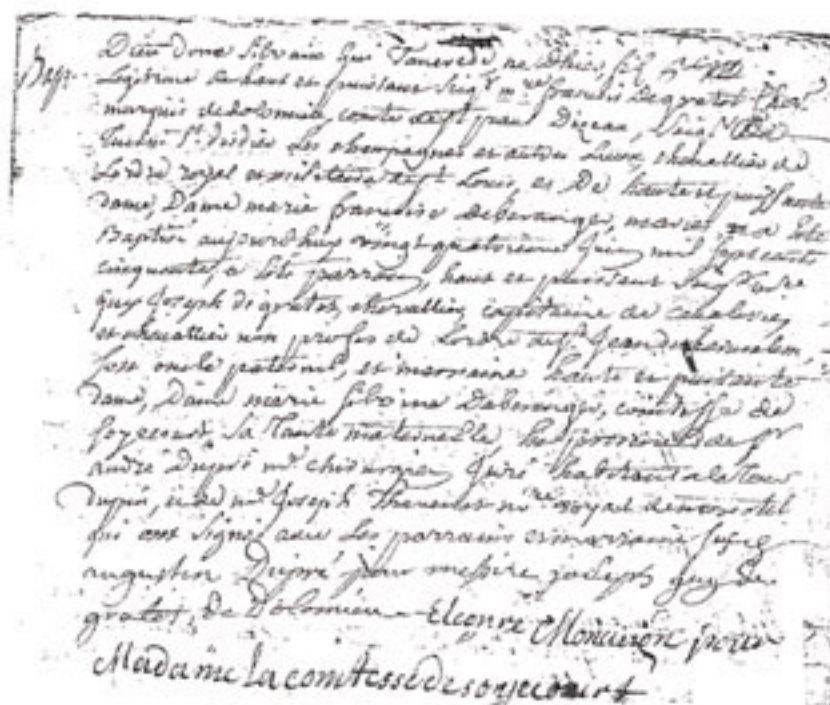 Dieu donè Silvain Guy Tancrede, né d'hier, fil
Legitime de haut et puissant Seigr mre francois Degratet Chevr
marquis dedolomieu, comte de St paul Dizeau, Seigr
Tuelin St Didier Les champagnes et autres Lieux, chevallier de
Lordre royal et militaire de St Louis, et De haute et puissante
Dame, Dame marie francoise deberanger, mariés, a esté
Baptisé aujourd'huy vingt quatrieme Juin mil sept cents
cinquante, a esté parrain, haut et puissant Seigr
Guy Joseph de gratet, chevallier, capitaine de cavalerie,
et chevallier non profes de Lordre de St Jean de Jerusalem,
son oncle paternel, et marraine haute et puissante
Dame, Dame marie silvine Deberanger, comtesse de
soyecourt, sa Tante maternelle, les presences de sr
André Dupré me chirurgien Juré habitant a la Tour
Dupin, et de me Joseph Thevenet nre royal
qui ont signé avec Les parrains et marraine
augustin Dupré pour messire joseph guy de
gratet, de Dolomieu Eleonre pour
Madame La comtesse de soyecourt